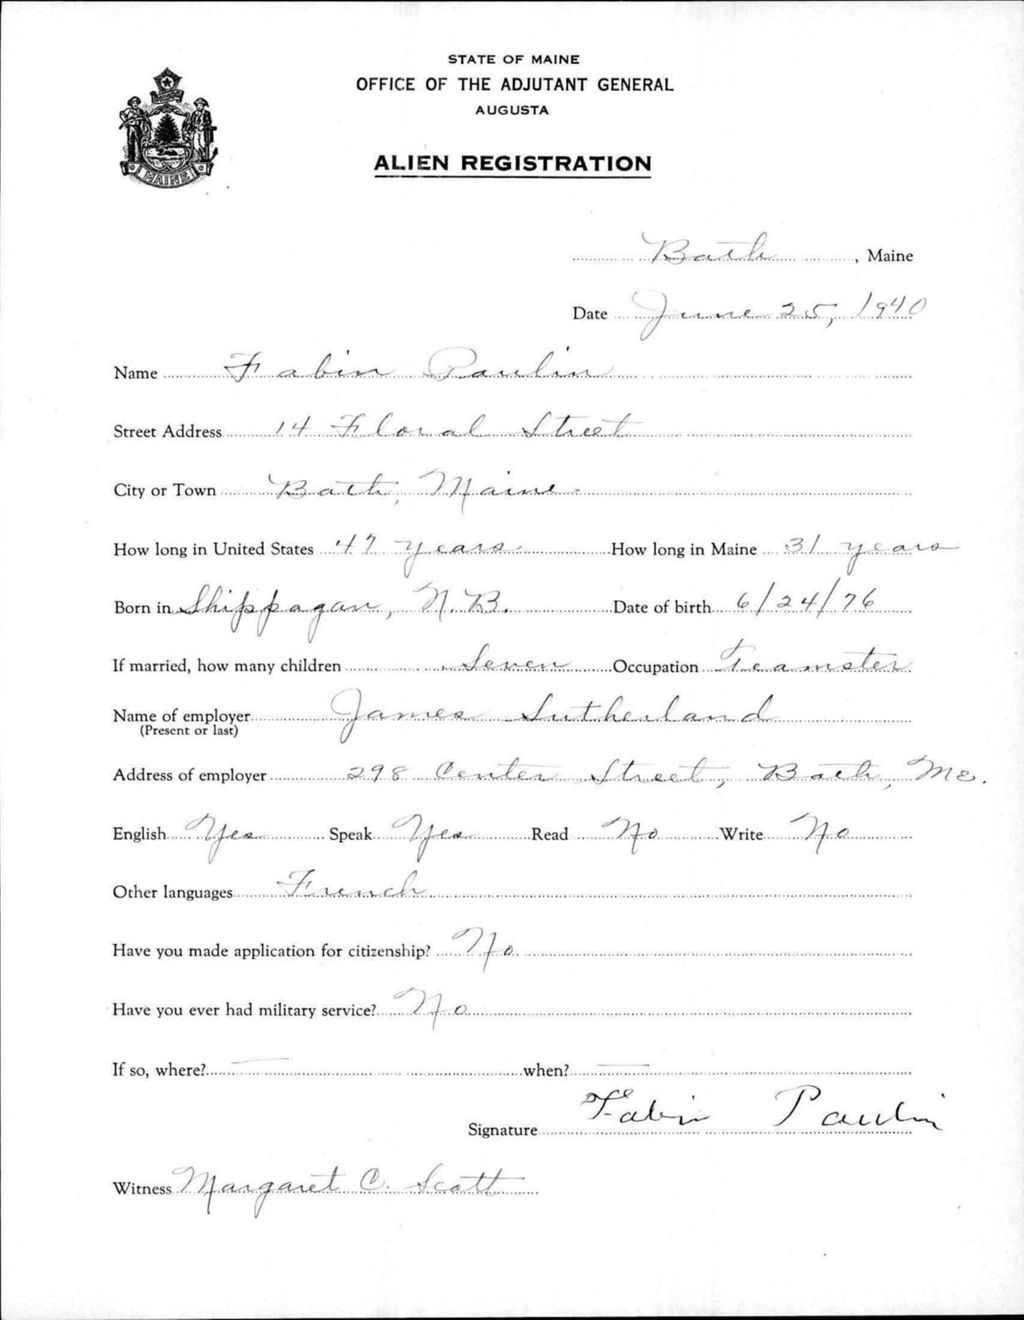 STATE OF MAINE
OFFICE OF THE ADJUTANT GENERAL
AUGUSTA
ALIEN REGISTRATION
MAINE
Bath, Maine
Date June 25, 1940
Name Fabin Paulin
Street Address 14 Floral Street
City or Town Bath, Maine
How long in United States 47 years How long in Maine 31 years
Born in Shippagan, N.B. Date of birth 6/24/76
If married, how many children Seven Occupation Teamster
Name of employer James Sutherland
(Present or last)
Address of employer 298 Center Street, Bath, Me.
English Yes Speak Yes Read No Write No
Other languages French
Have you made application for citizenship? No
Have you ever had military service? No
If so, where? — when? —
Signature Fabin Paulin
Witness Margaret C. Scott